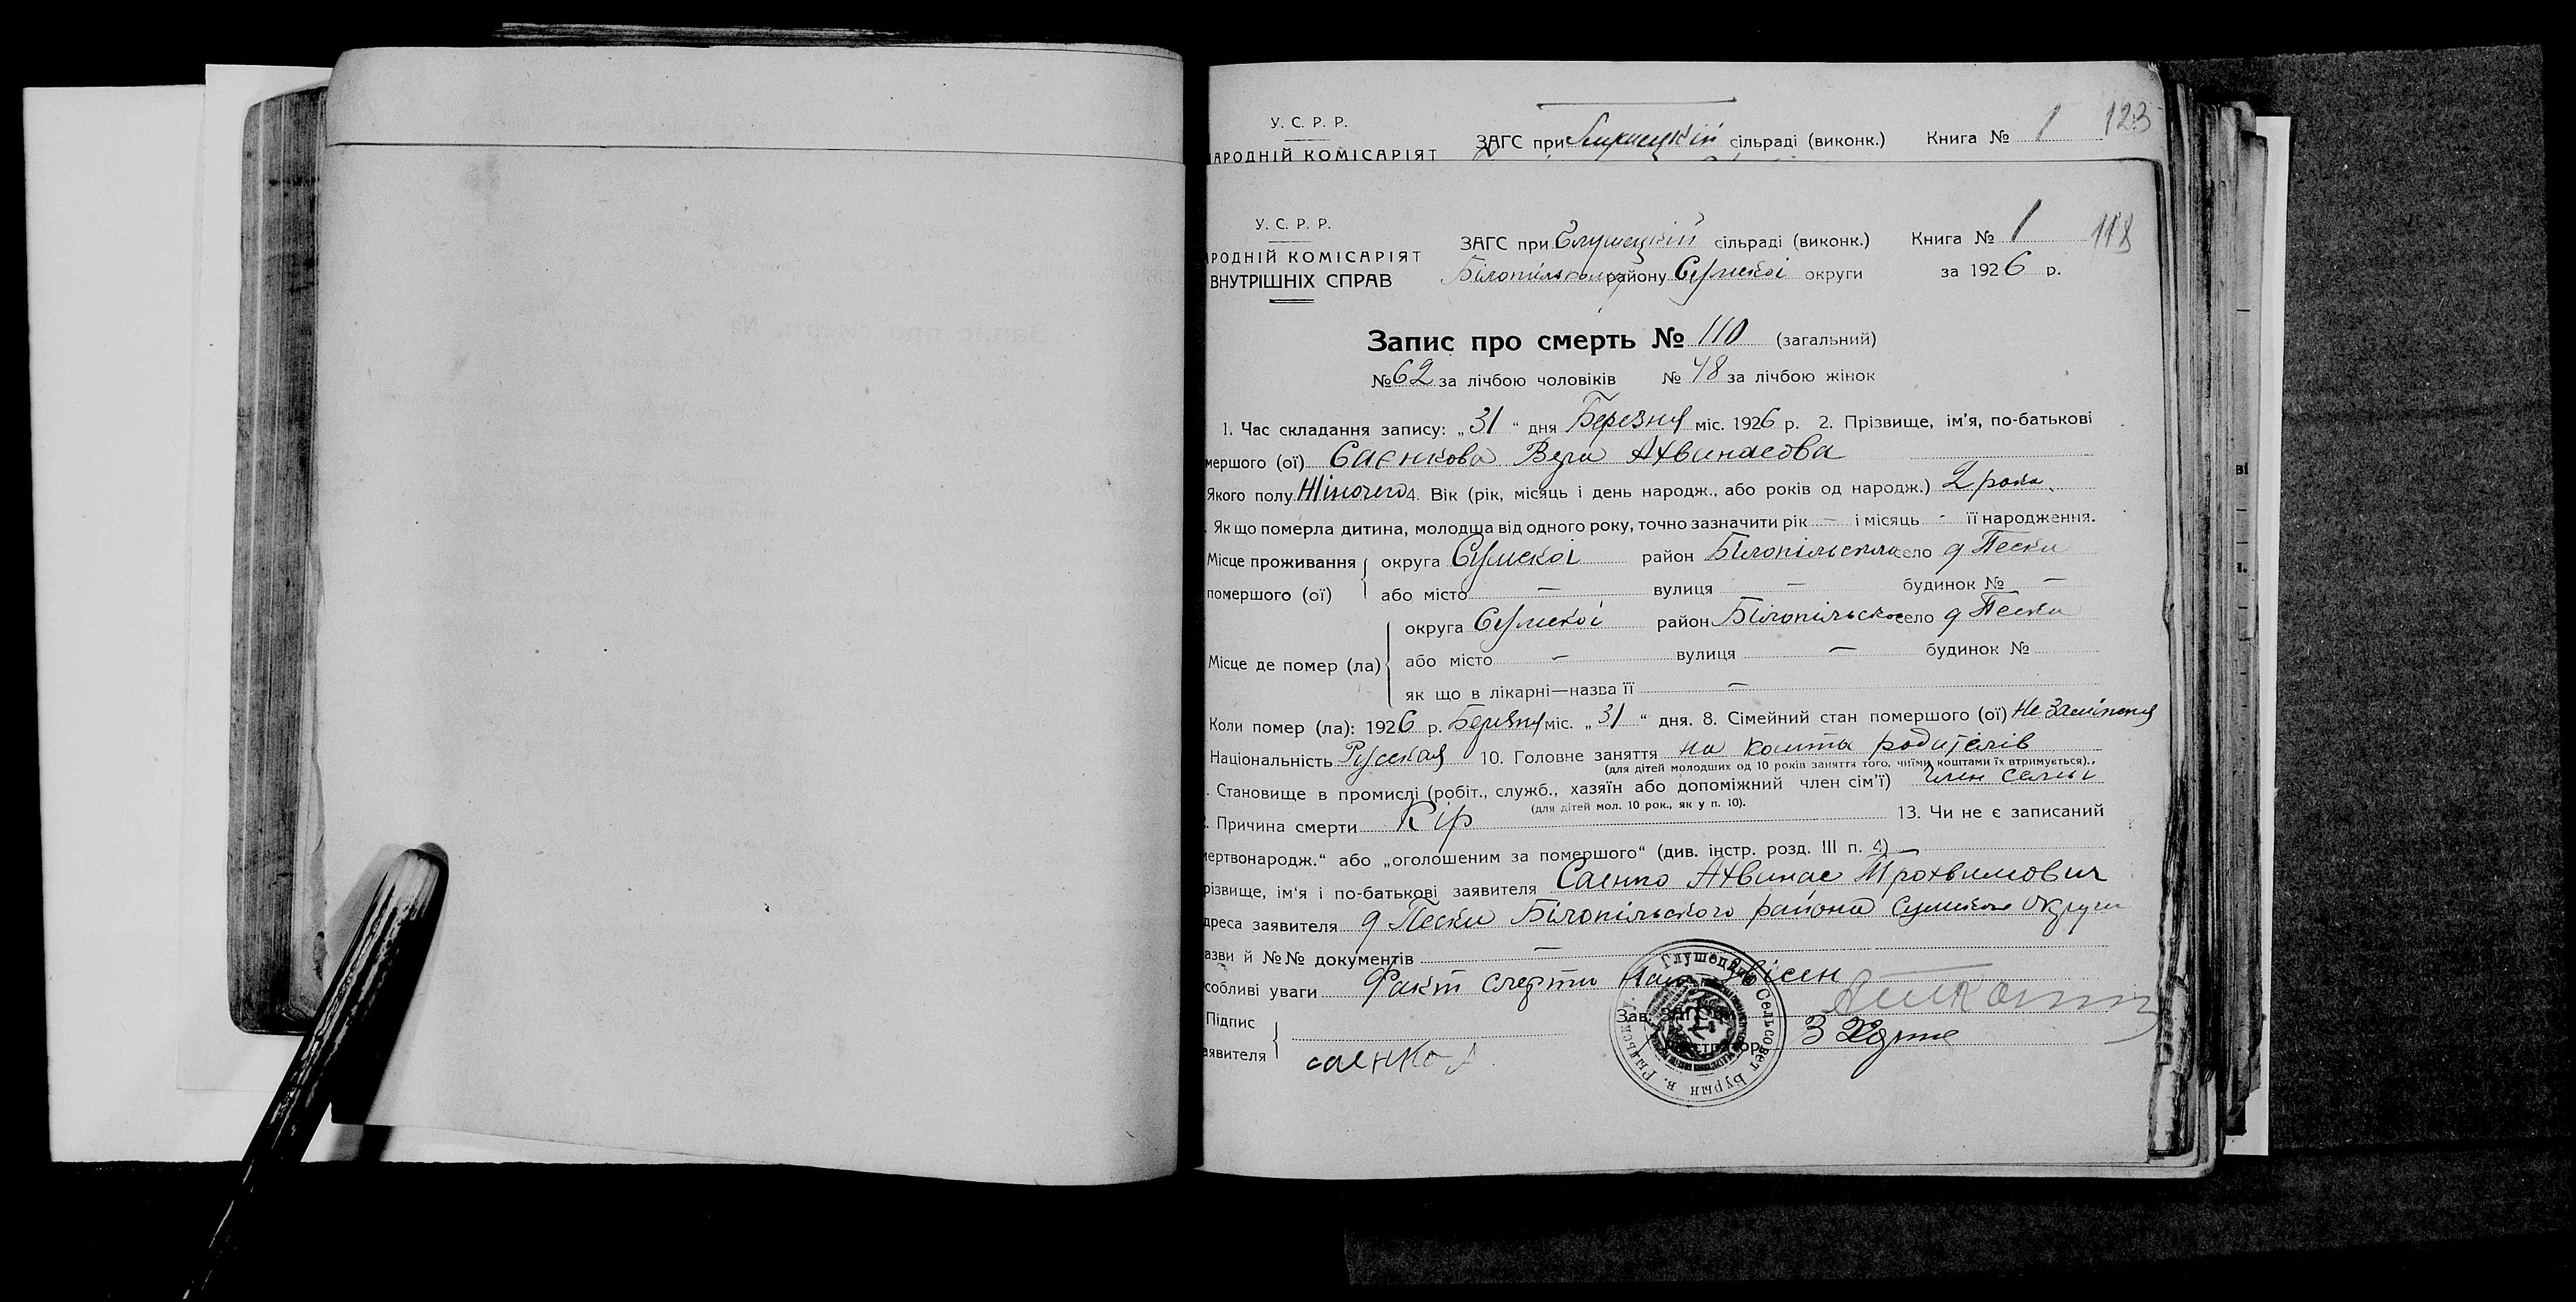 У. С. Р. Р.
АРОДНІЙ КОМІСАРІЯТ
ЗАГС при сільраді (виконк.) Книга № 1 123
У. С. Р. Р.
РОДНІЙ КОМІСАРІЯТ
ВНУТРІШНІХ СПРАВ
ЗАГС при сільраді (виконк.) Книга № 1 118
району Сумскої округи за 1926 р.
Запис про смерть № 110 (загальний)
№ 62 за лічбою чоловіків № 48 за лічбою жінок
1. Час складання запису: „31“ дня Березня міс. 1926 р. 2. Прізвище, ім’я, по-батькові
мершого (ої) Саєнкова Вера Ахвинасова
Якого полу Жіночого 4. Вік (рік, місяць і день народж., або років од народж.) 2 рока
. Як що померла дитина, молодша від одного року, точно зазначити рік — і місяць - її народження.
Місце проживання округа Сумскої район село д Пески
помершого (ої) або місто — вулиця — будинок № —
округа Сумскої район Білопільско село д Пески
Місце де помер (ла) або місто — вулиця — будинок №
як що в лікарні—назва її —
Коли помер (ла): 1926 р. Березня міс. „31“ дня. 8. Сімейний стан помершого (ої) Не
Національність Русская 10. Головне заняття на кошты родителів
(для дітей молодших од 10 років заняття того, чиїми коштами їх втримується).,
. Становище в промислі (робіт., служб., хазяїн або допоміжний член сім’ї) член семьі
(для дітей мол. 10 рок., як у п. 10).
. Причина смерти Кір 13. Чи не є записаний
мертвонародж.“ або „оголошеним за помершого“ (див. інстр. розд. III п. 4) —
різвище, ім‘я і по-батькові заявителя Саенко Ахвинас Трохвимович
дреса заявителя д Пески Білопільского района Сумской Округи
азви й №№ документів —
собливі уваги Факт смерти
Підпис
аявителя саенко А
Зав. ЗАГС'ом
Реєстратор
Глушецкий Сельсовет Бурын в. Рыльск